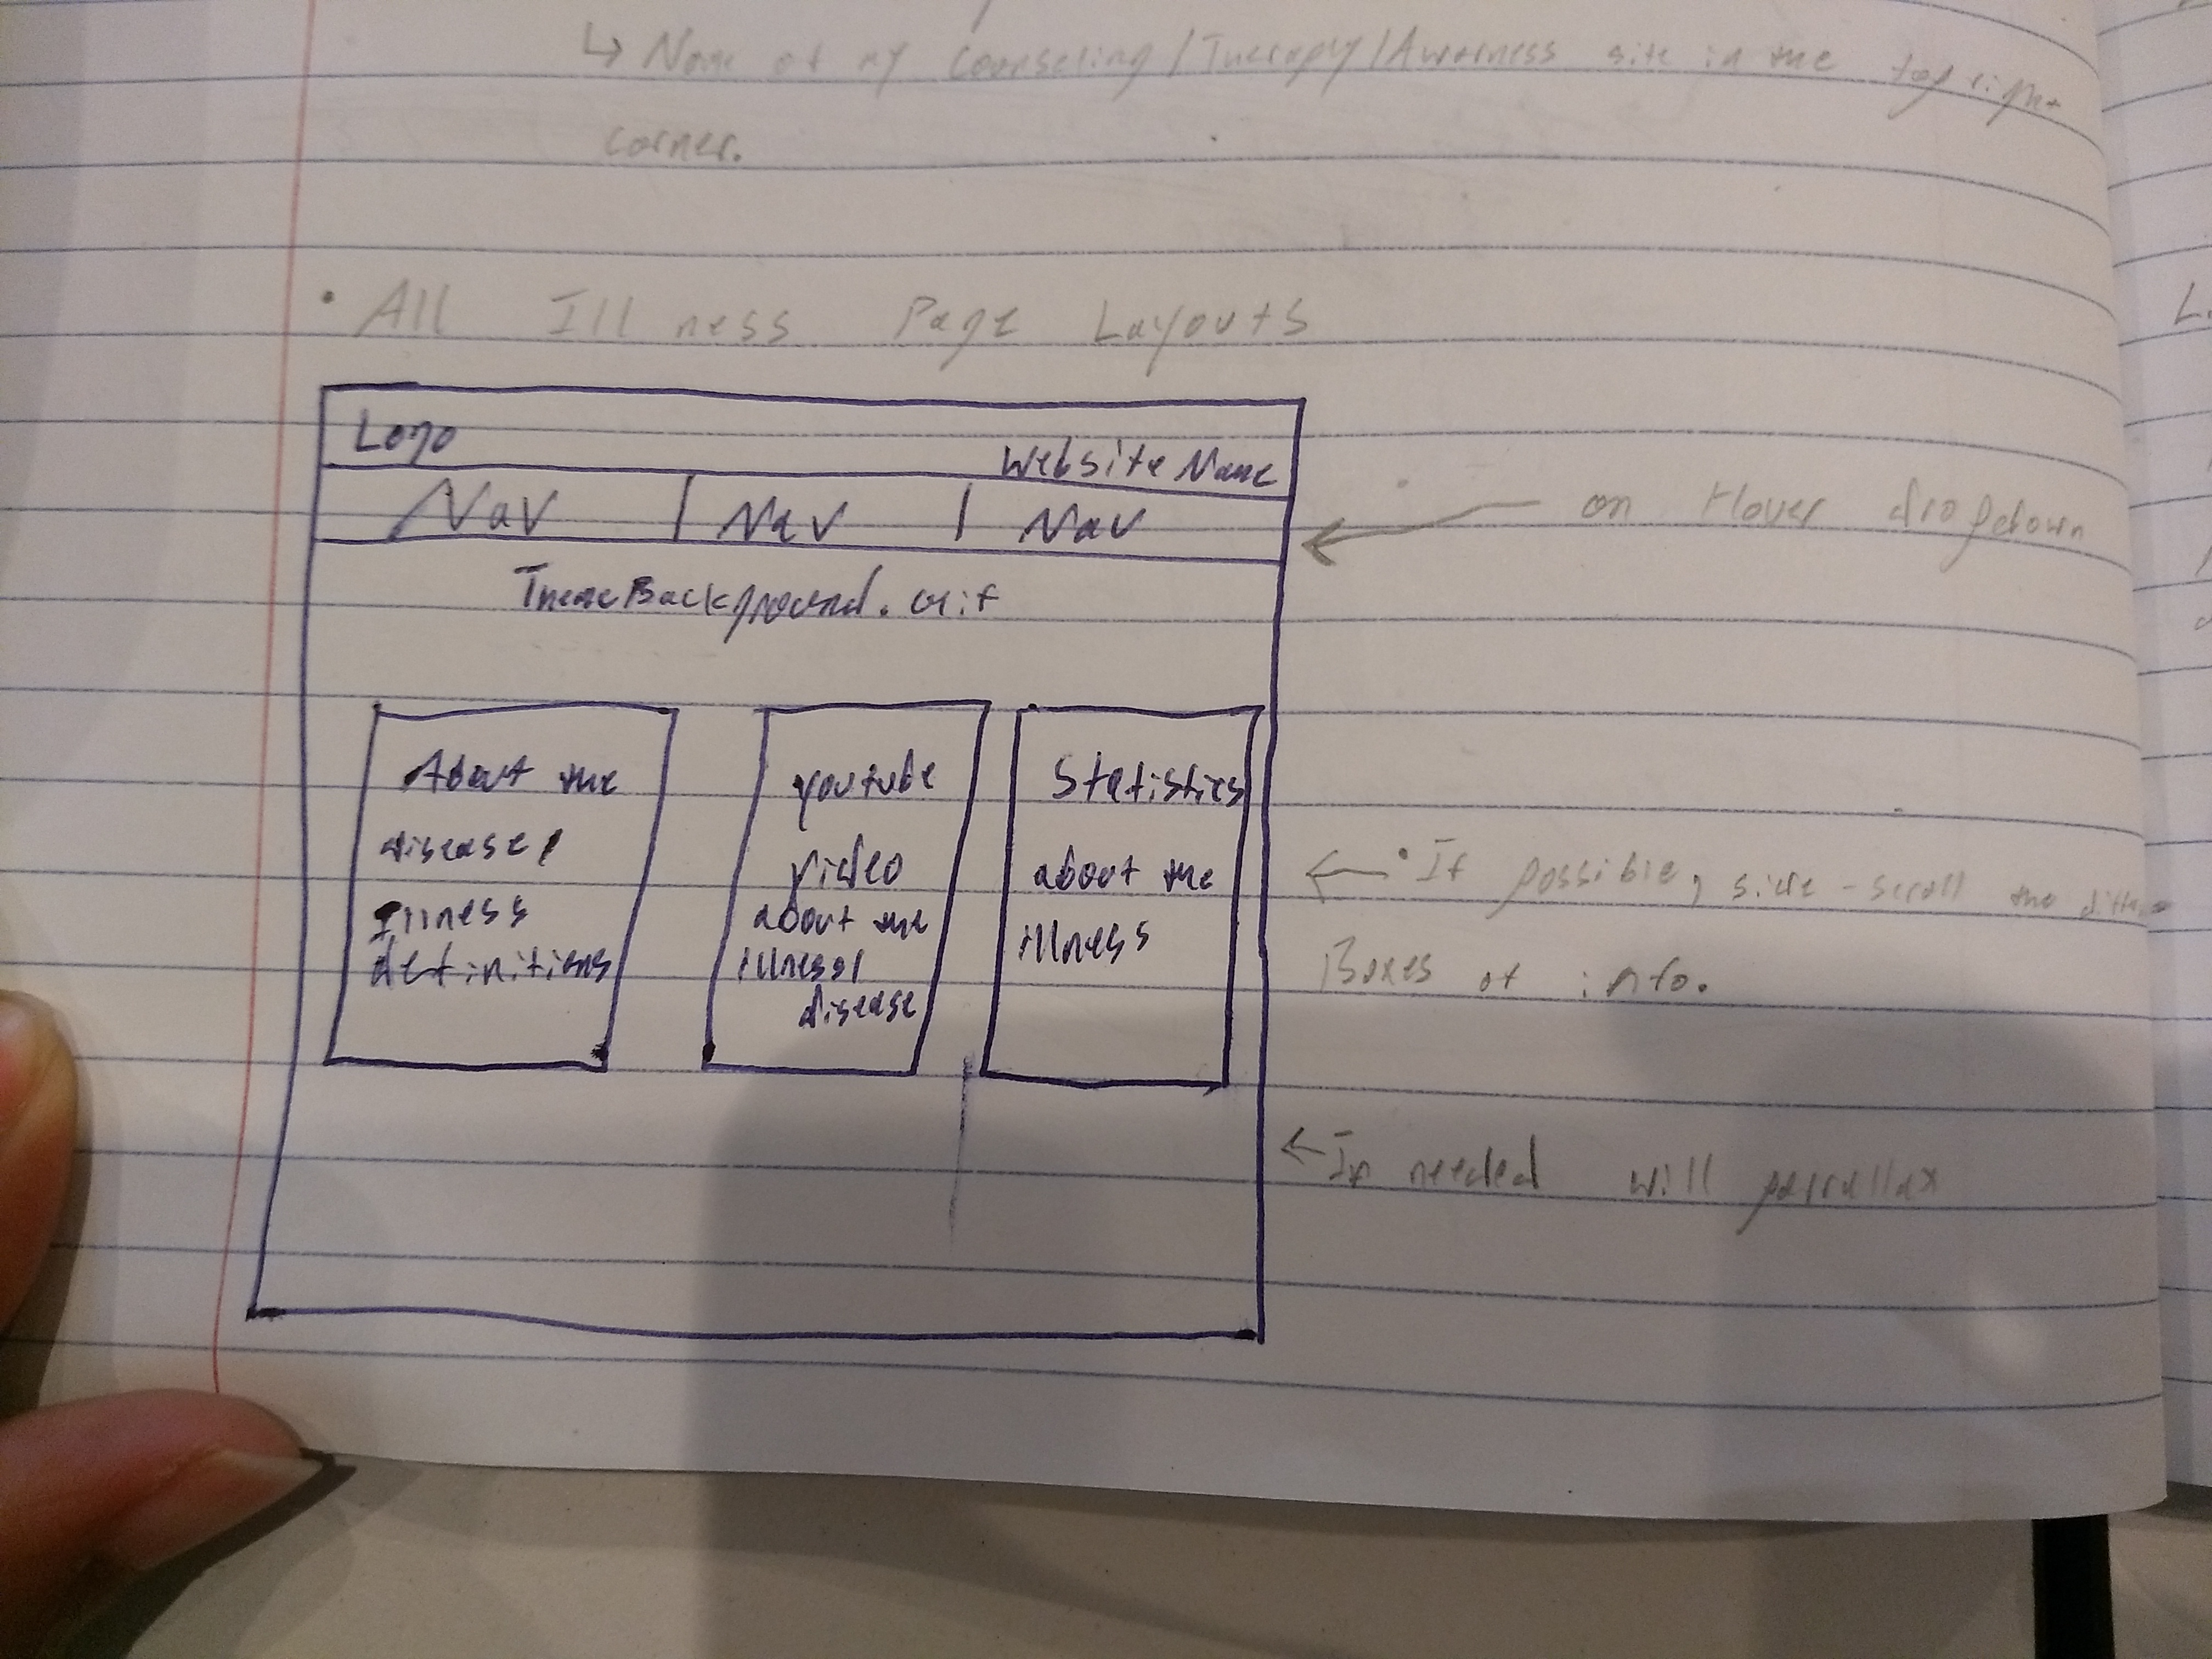 ↳ Name of my Counseling/Therapy/Awarness site in the top right
corner.
• All Illness Page Layouts
Logo
Website Name
Nav | Nav | Nav
on Hover dropdown
ThemeBackground.Gif
About the
disease/
Illness
definitions
youtube
video
about the
illness/
disease
Statistics
about the
illness
• If possible, side-scroll the
Boxes of info.
needed will parallax